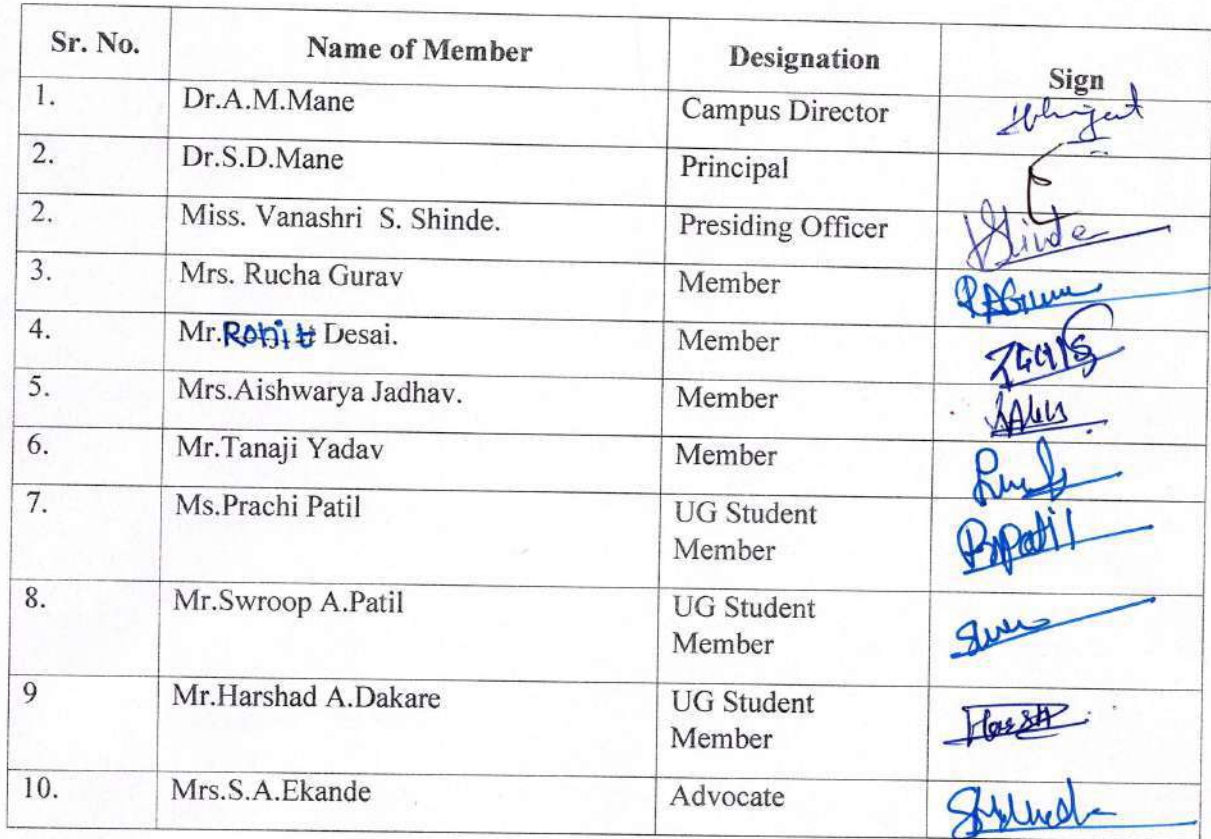 Sr. No. Name of Member Designation Sign
1. Dr.A.M.Mane Campus Director
2. Dr.S.D.Mane Principal
2. Miss. Vanashri S. Shinde. Presiding Officer Shinde
3. Mrs. Rucha Gurav Member
4. Mr.Rohit Desai. Member
5. Mrs.Aishwarya Jadhav. Member
6. Mr.Tanaji Yadav Member
7. Ms.Prachi Patil UG Student
Member PPatil
8. Mr.Swroop A.Patil UG Student
Member
9 Mr.Harshad A.Dakare UG Student
Member
10. Mrs.S.A.Ekande Advocate